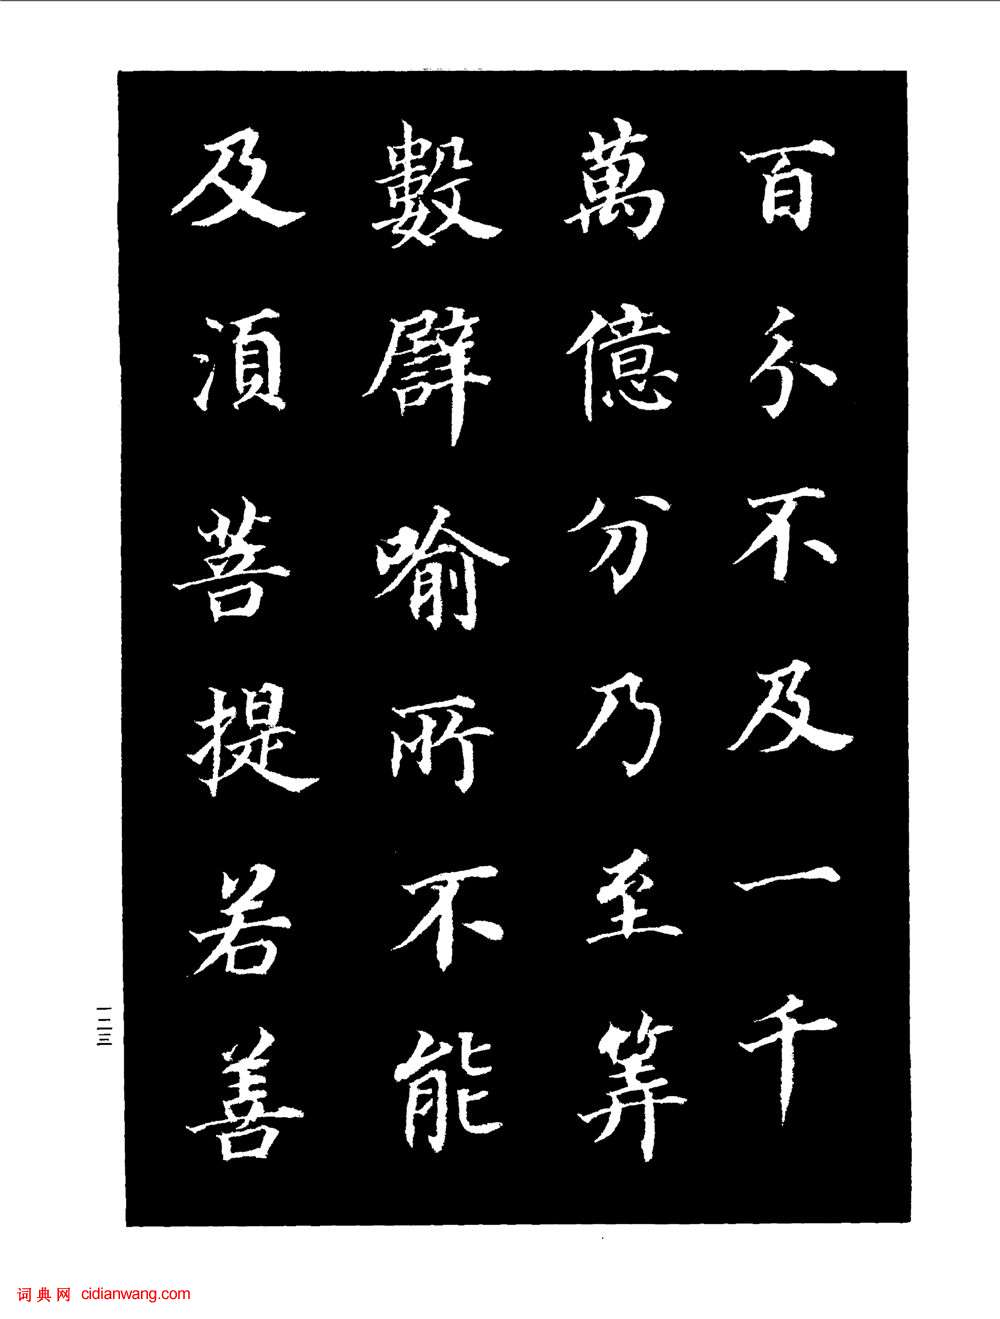 百分不及一千
萬億分乃至筭
數譬喻所不能
及須菩提若善
一二三
词典网 cidianwang.com